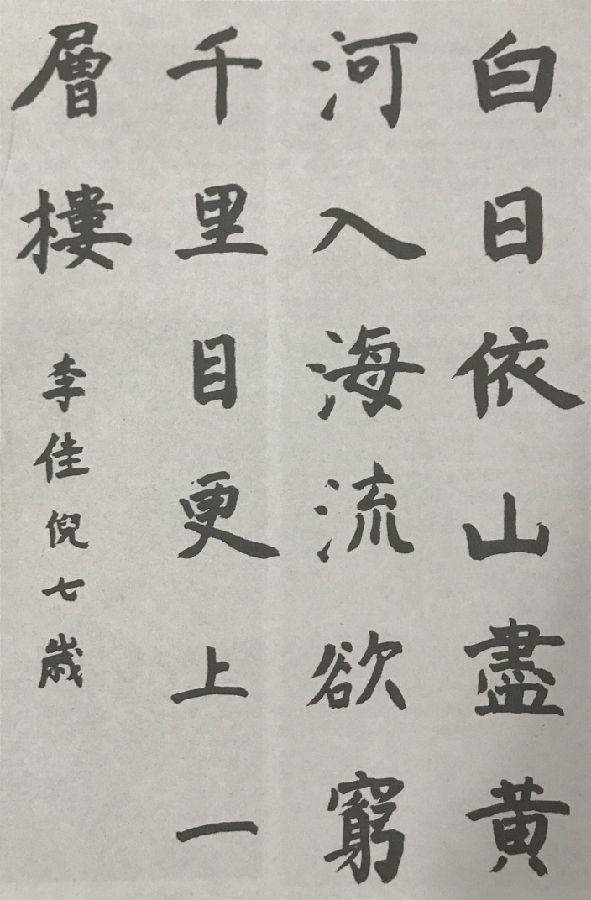 白日依山盡黄
河入海流欲窮
千里目更上一
層樓
李佳倪七歲